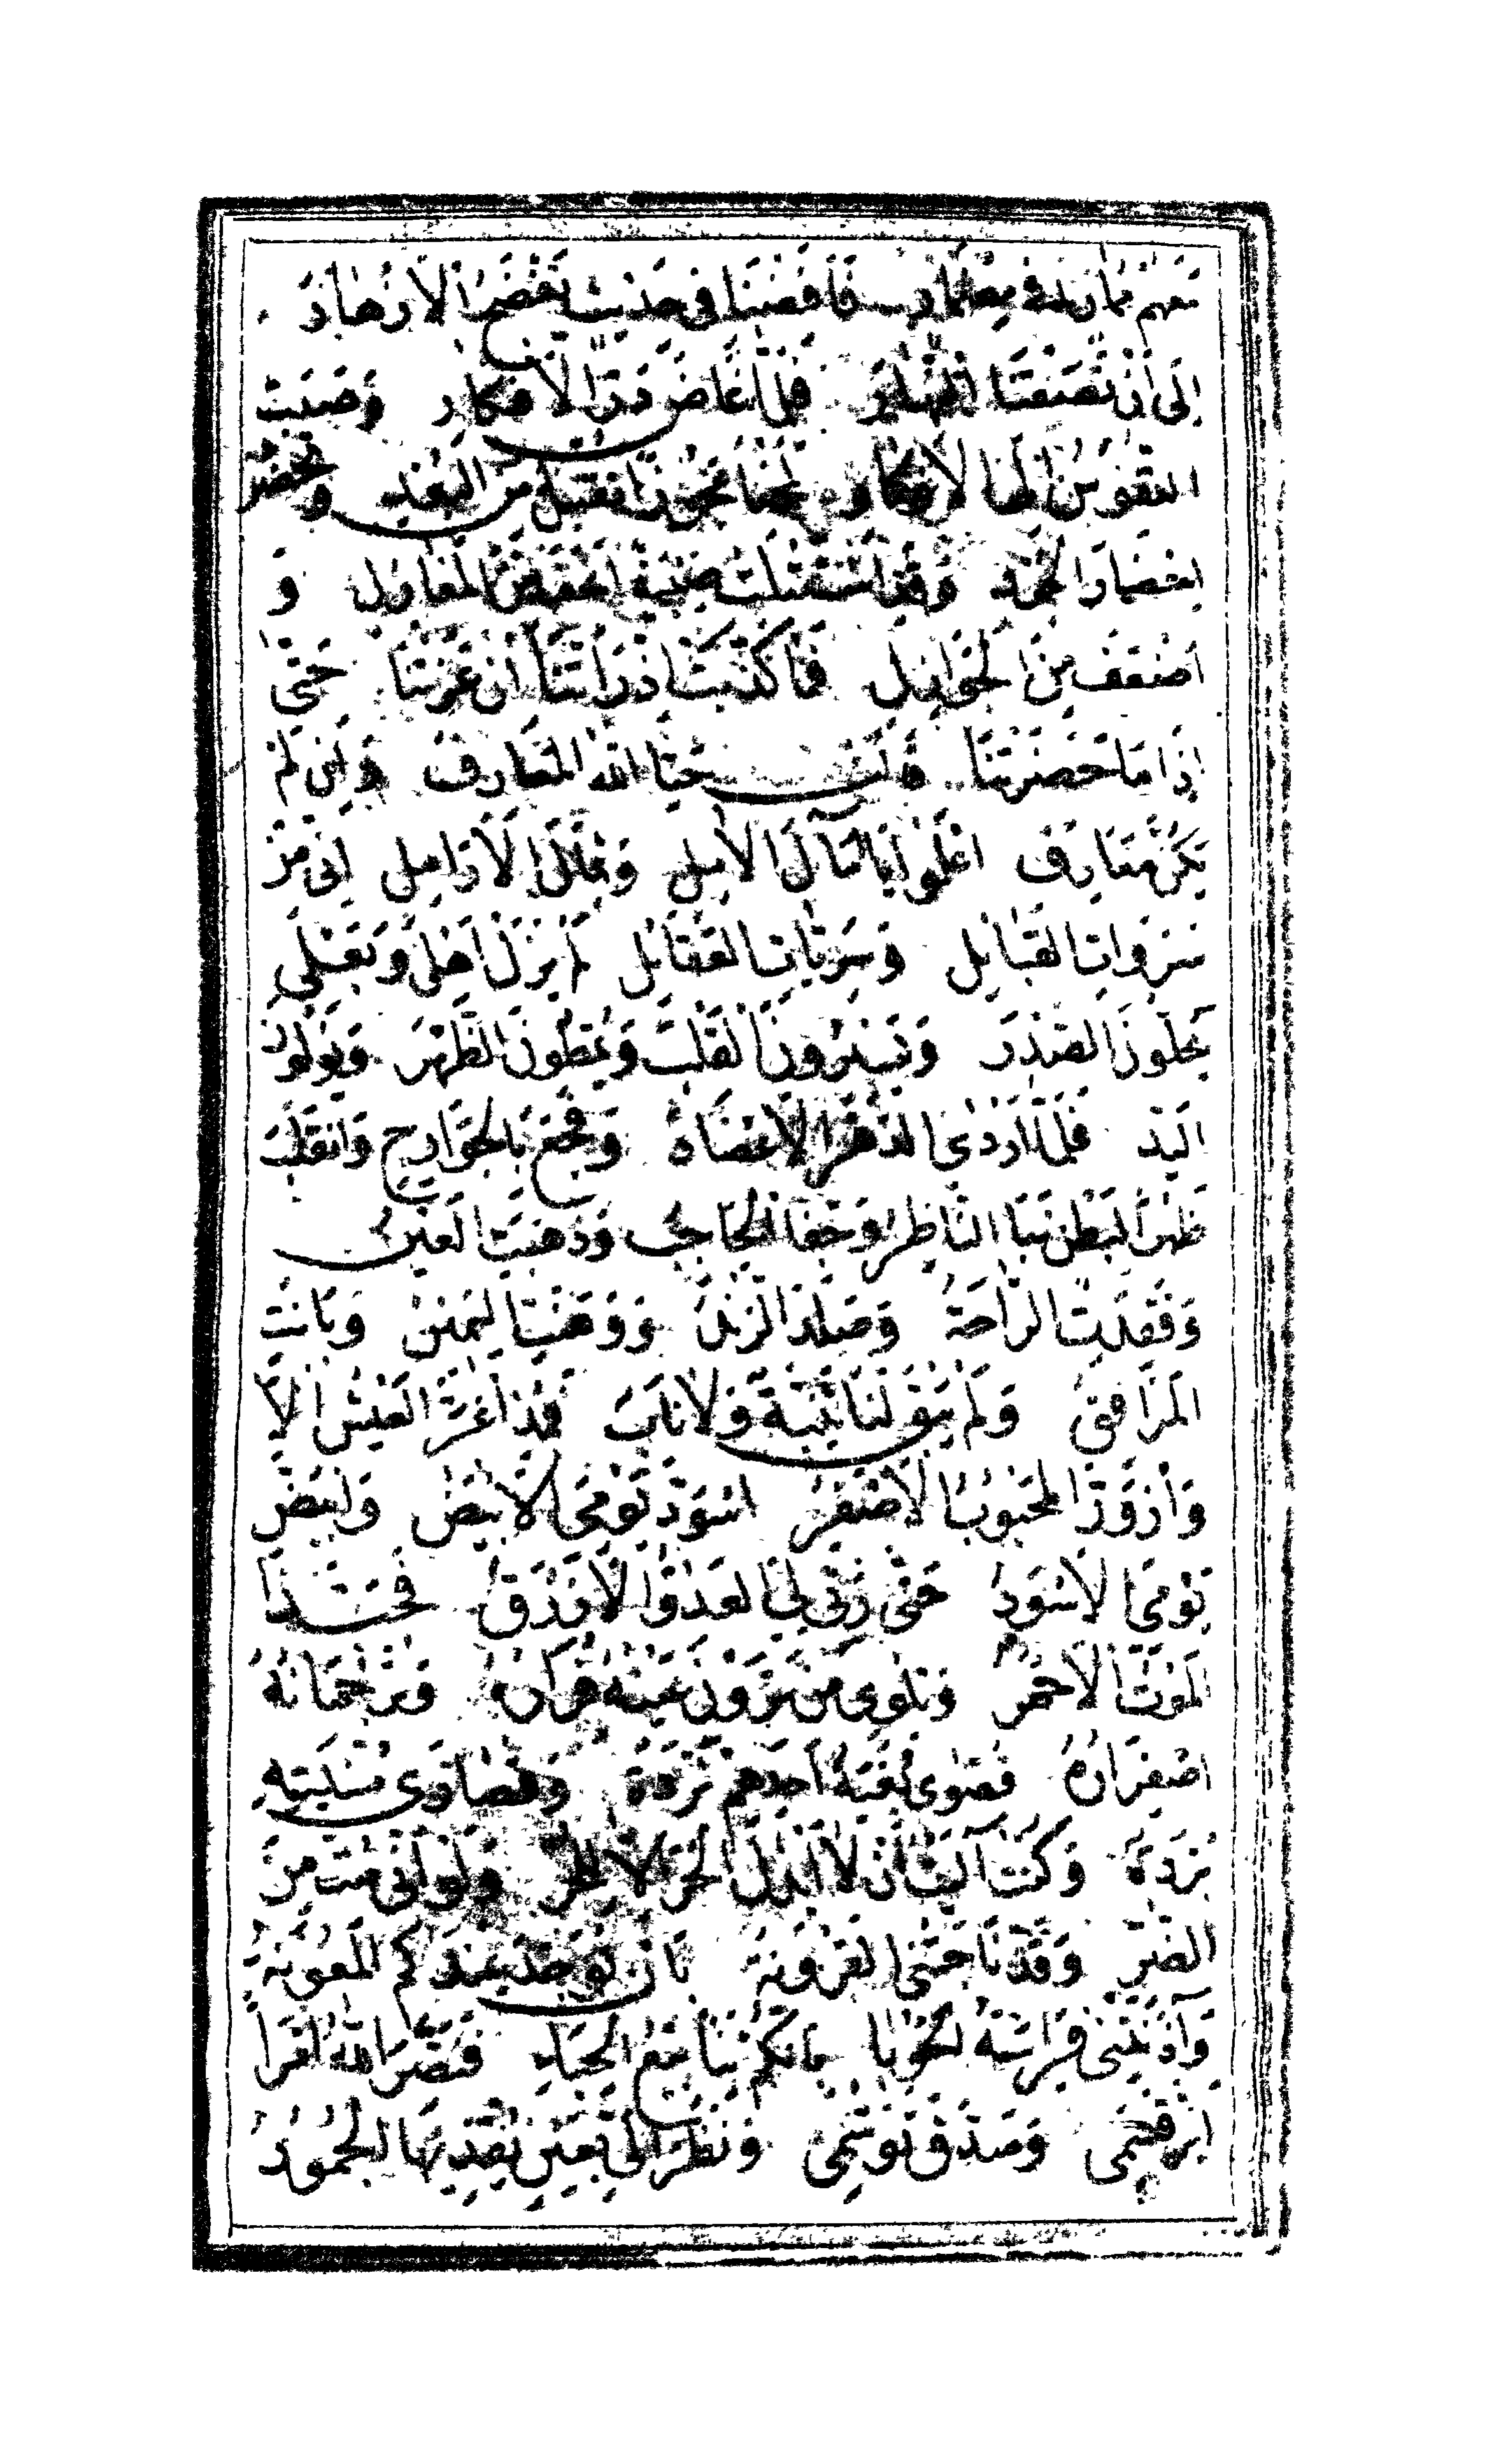 منهم ممار فى مضمار فافضنا فى حديث يفضح الازهار
الى ان نصفنا النهار فلما غاض در الافكار وصبت
النفوس الى الاوكار لمحنا عجوزا تقبل من البعد وتحضر
احضار الجرد وقد استتلت صبية انحف من المغازل و
اضعف من الجوازل فما كذبت اذ راتنا ان عرتنا حتى
اذا ما حضرتنا قالت حيا الله المعارف وان لم
يكن معارف اعلموا يا مآل الآمل وثمال الارامل انى من
سروات القبائل وسريات العقائل لم يزل اهلى وبعلى
يحلون الصدر ويسيرون القلب ويمطون الظهر ويولون
اليد فلما اردى الدهر الاعضاد وفجع بالجوارح وانقلب
ظهرا لبطن نبا الناظر وجفا الحاجب وذهبت العين
وفقدت الراحة وصلد الزند ووهنت اليمين وبانت
المرافق ولم يبق لنا ثنية ولا ناب فمذ اغبر العيش الا
وازور المحبوب الاصفر اسود يومى الابيض وابيض
فودى الاسود حتى رثى لى العدو الازرق فحبذا
الموت الاحمر وتلوى من ترون عينه فراره وترجمانه
اصفراره قصوى بغية احدهم ثردة وقصارى منيته
بردة وكنت آليت ان لا ابذل الحر الا للحر ولو انى مت من
الضر وقد ناجتنى القرونة بان توجد عندكم المعونة
وآذنتنى فراسة الحوباء بانكم ينابيع الحباء فنضر الله امرأ
ابر قسمى وصدق توسمى ونظر الى بعين يقذيها الجمود